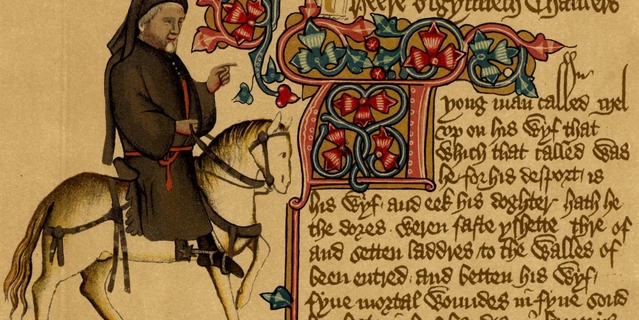 Heere bigynneth Chaucers
A yong man called Mel
vp on his wyf that
which that called was
he for his desport is
his wyf and eek his doghter hath he
the dores weren faste yshette thre of
and setten laddres to the walles of
been entred and betten his wyf
fyue mortal woundes in fyue sond